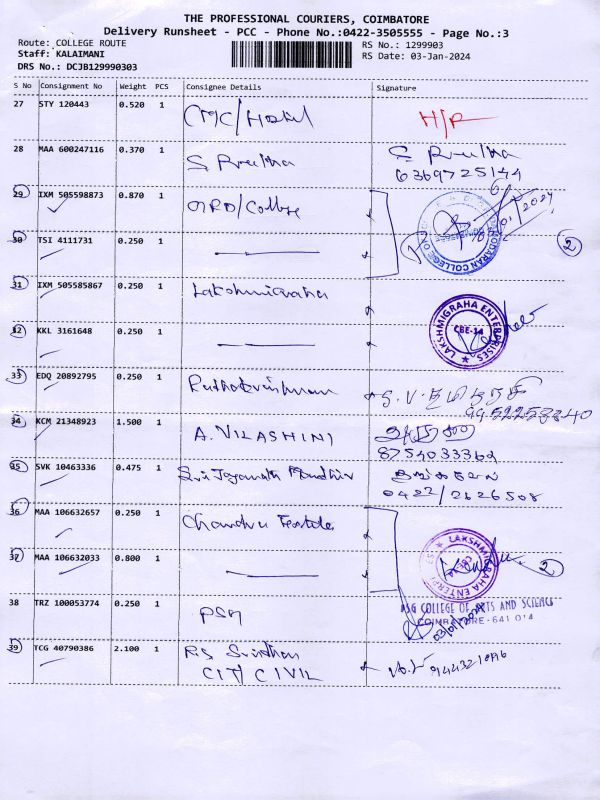 THE PROFESSIONAL COURIERS, COIMBATORE
Delivery Runsheet - PCC - Phone No.:0422-3505555 - Page No.:3
Route: COLLEGE ROUTE
RS No.: 1299903
Staff: KALAIMANI
RS Date: 03-Jan-2024
DRS No.: DCJB129990303
S No Consignment No Weight PCS Consignee Details Signature
27 STY 120443 0.520 1 CMC/Hostel H/R
28 MAA 600247116 0.370 1 S Preetha S Preetha
6369725144
29 IXM 505598873 0.870 1 GRD/College
30 TSI 4111731 0.250 1
2
31 IXM 505585867 0.250 1 Lakshmigraha
LAKSHMIGRAHA ENTERPRISES
CBE-14
32 KKL 3161648 0.250 1
33 EDQ 20892795 0.250 1 S.V.
34 KCM 21348923 1.500 1 A. VILASHINI
8754033362
35 SVK 10463336 0.475 1 Sri Jaganath Mandhir
0422/2626508
36 MAA 106632657 0.250 1 Chandru Textile
37 MAA 106632033 0.800 1
LAKSHMIGRAHA ENTERPRISES
2
38 TRZ 100053774 0.250 1 PSG
PSG COLLEGE OF ARTS AND SCIENCE
COIMBATORE-641 014
03/01/2024
39 TCG 40790386 2.100 1 R.S Sridhar
CIT/CIVIL